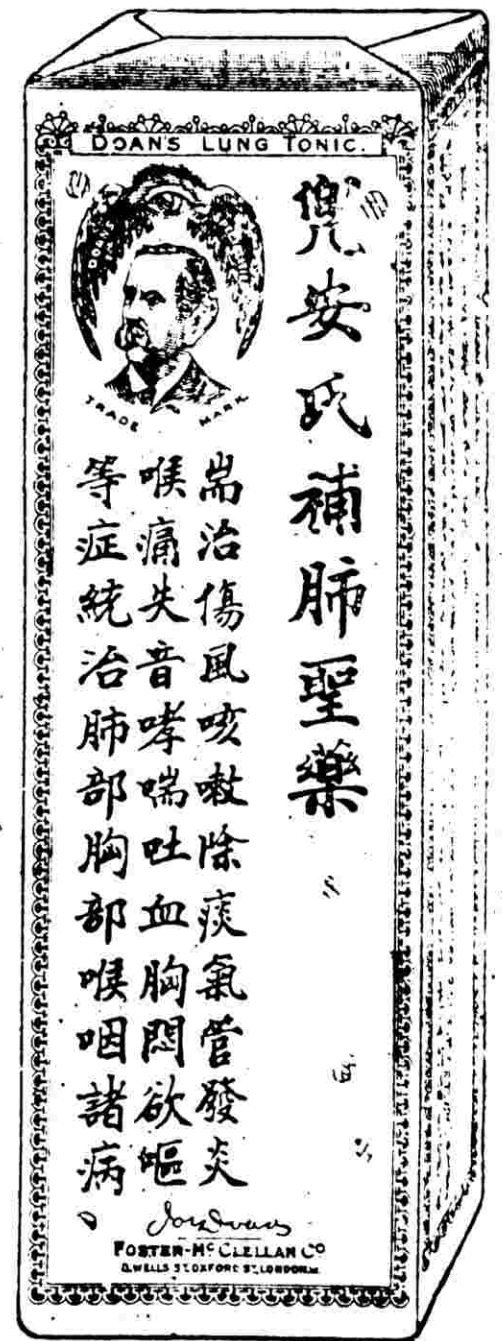 DOAN'S LUNG TONIC.
TRADE MARK
兜安氏補肺聖藥
耑治傷風咳嗽除痰氣管發炎
喉痛失音哮喘吐血胸悶欲嘔
等症統治肺部胸部喉咽諸病
FOSTER-McCLELLAN Co
8, WELLS ST. OXFORD ST. LONDON.W.